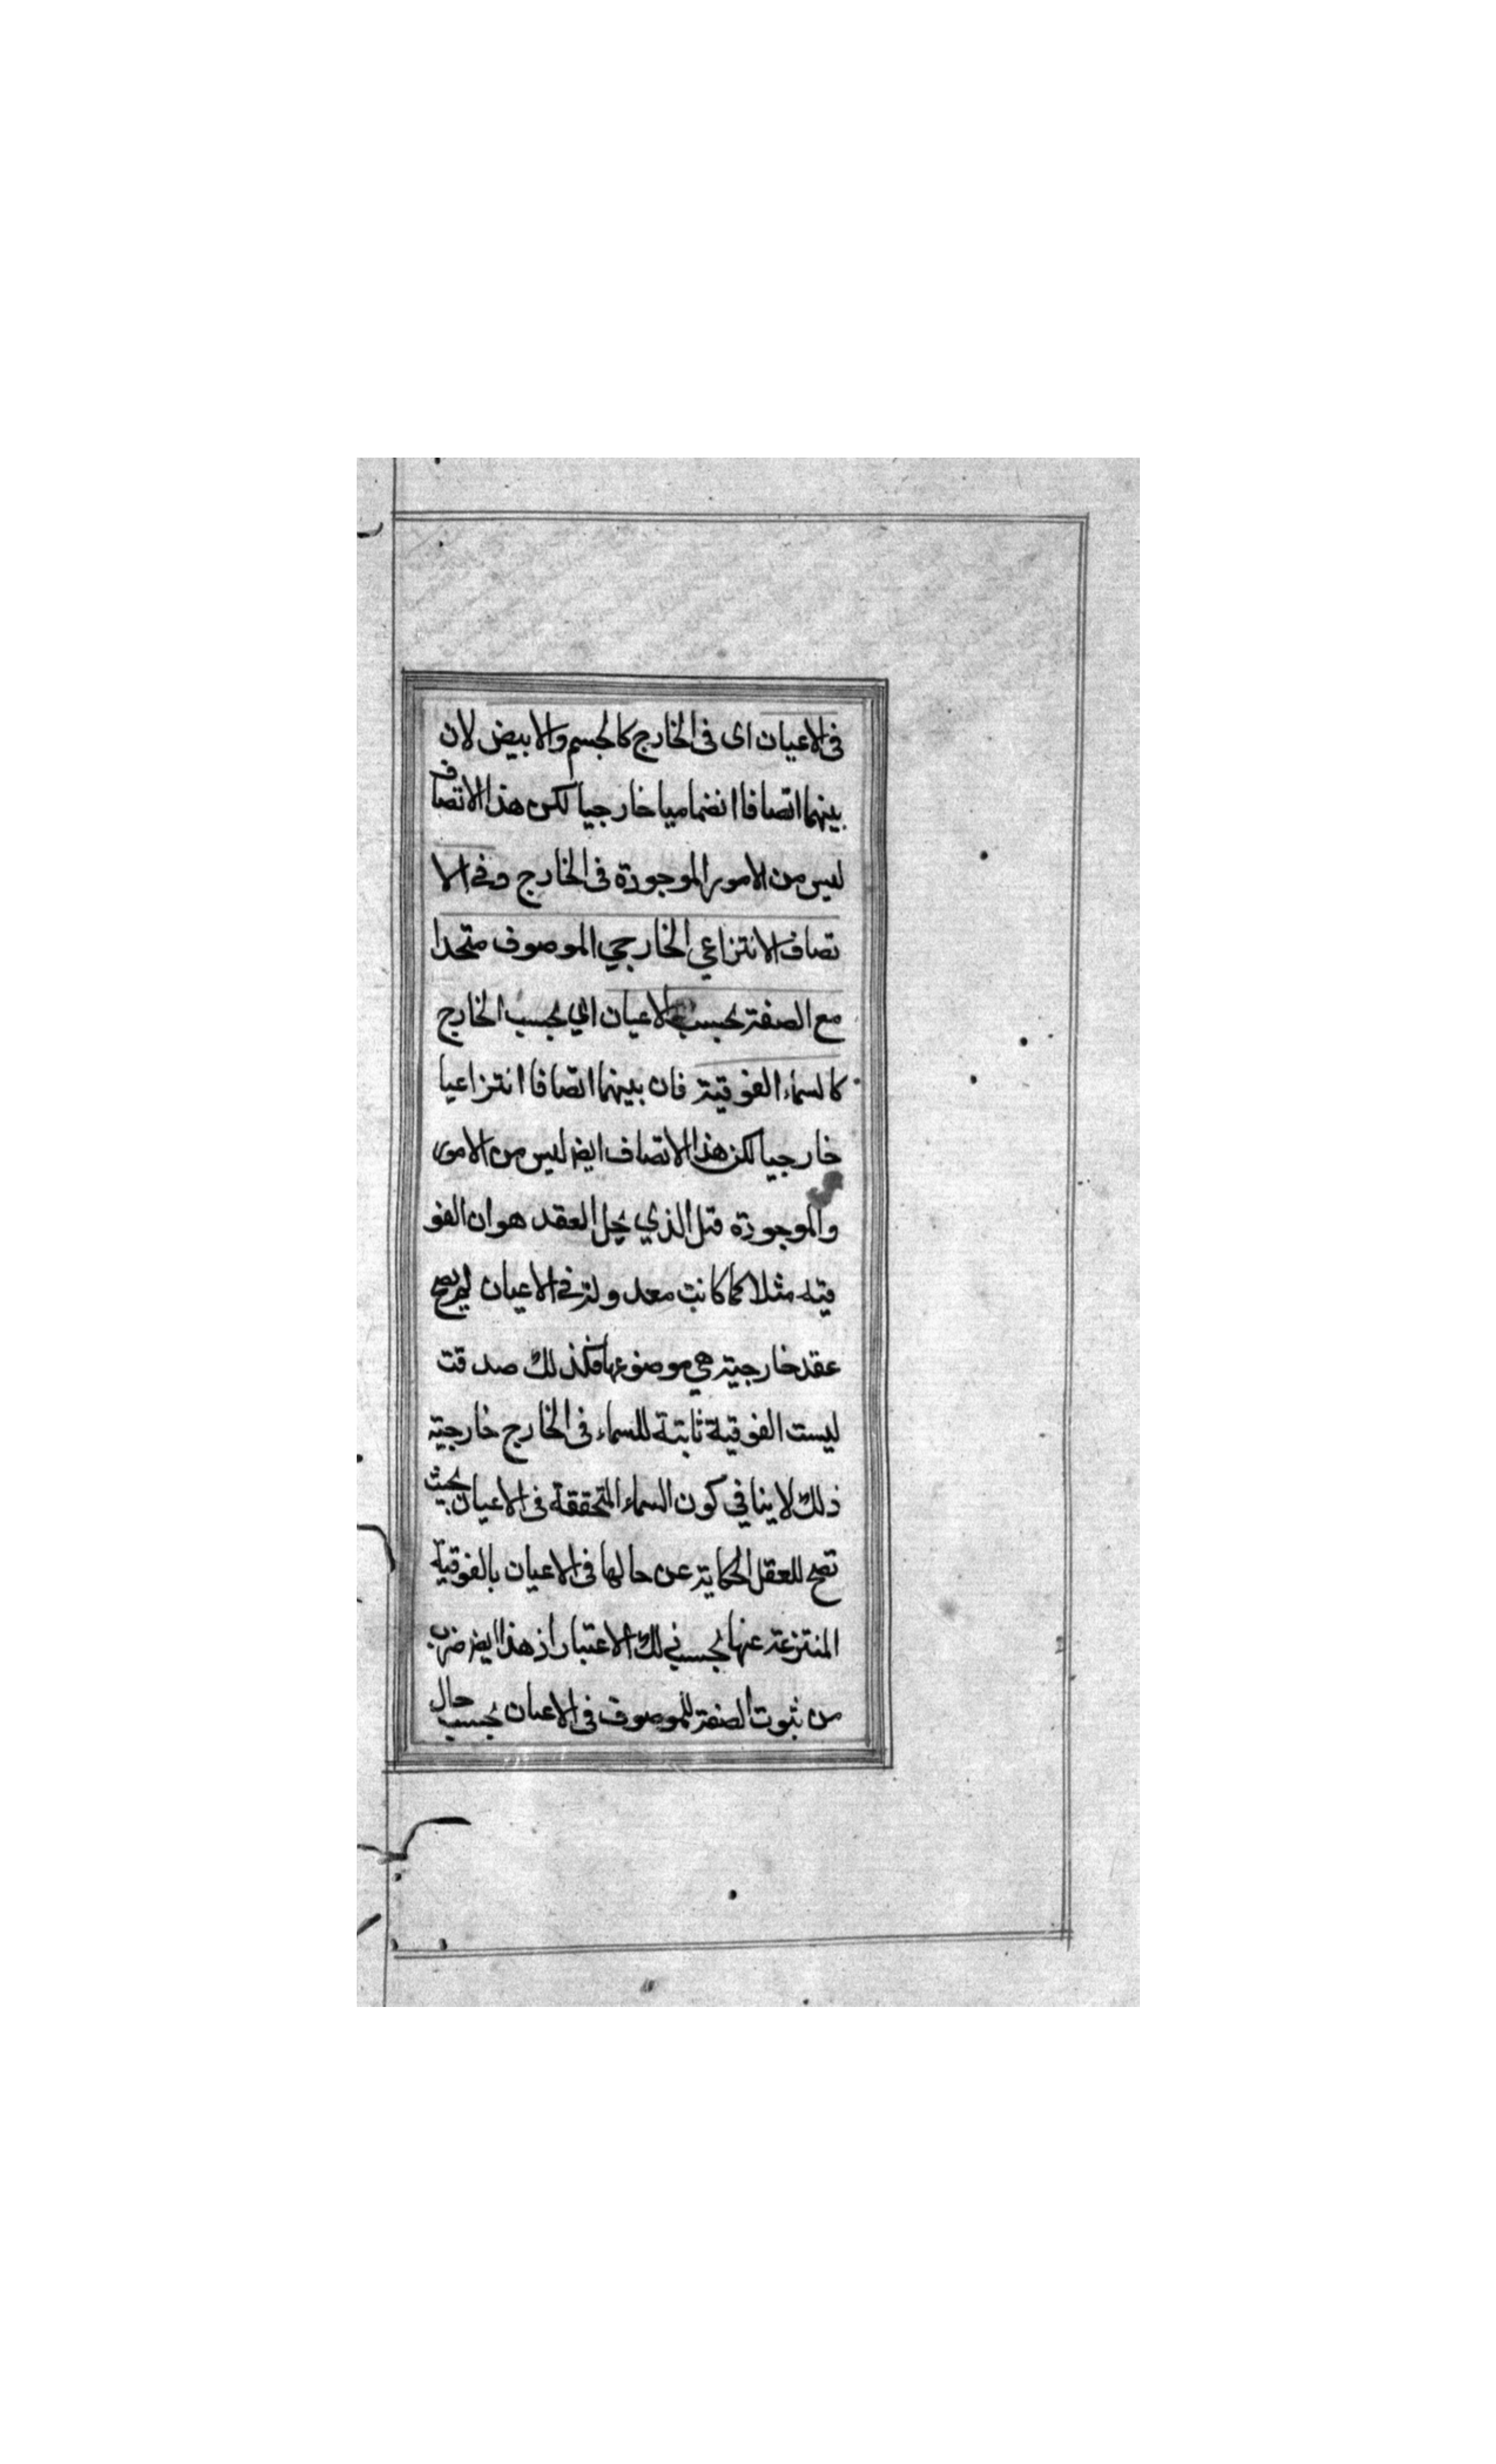 فى الاعيان اى فى الخارج كالجسم والابيض لان
بينهما اتصافا انضماميا خارجيا لكن هذا الاتصاف
ليس من الامور الموجودة فى الخارج وفى الا
تصاف الانتزاعي الخارجي الموصوف متحدا
مع الصفة بحسب الاعيان اي بحسب الخارج
كالسماء الفوقية فان بينهما اتصافا انتزاعيا
خارجيا لكن هذا الاتصاف ايض ليس من الامور
والموجودة قتل الذي يحل العقد هو ان الفو
قية مثلا كما كانت معدولة فى الاعيان لم يصح
عقد خارجية هي موضوعها فكذلك صدقت
ليست الفوقية ثابتة للسماء فى الخارج خارجية
ذلك لا ينافي كون السماء المتحققة فى الاعيان بحيث
تصح للعقل الحكاية عن حالها فى الاعيان بالفوقية
المنتزعة عنها بحسب ذلك الاعتبار اذ هذا ايض ضرب
من ثبوت الصفة للموصوف فى الاعيان بحسب حال